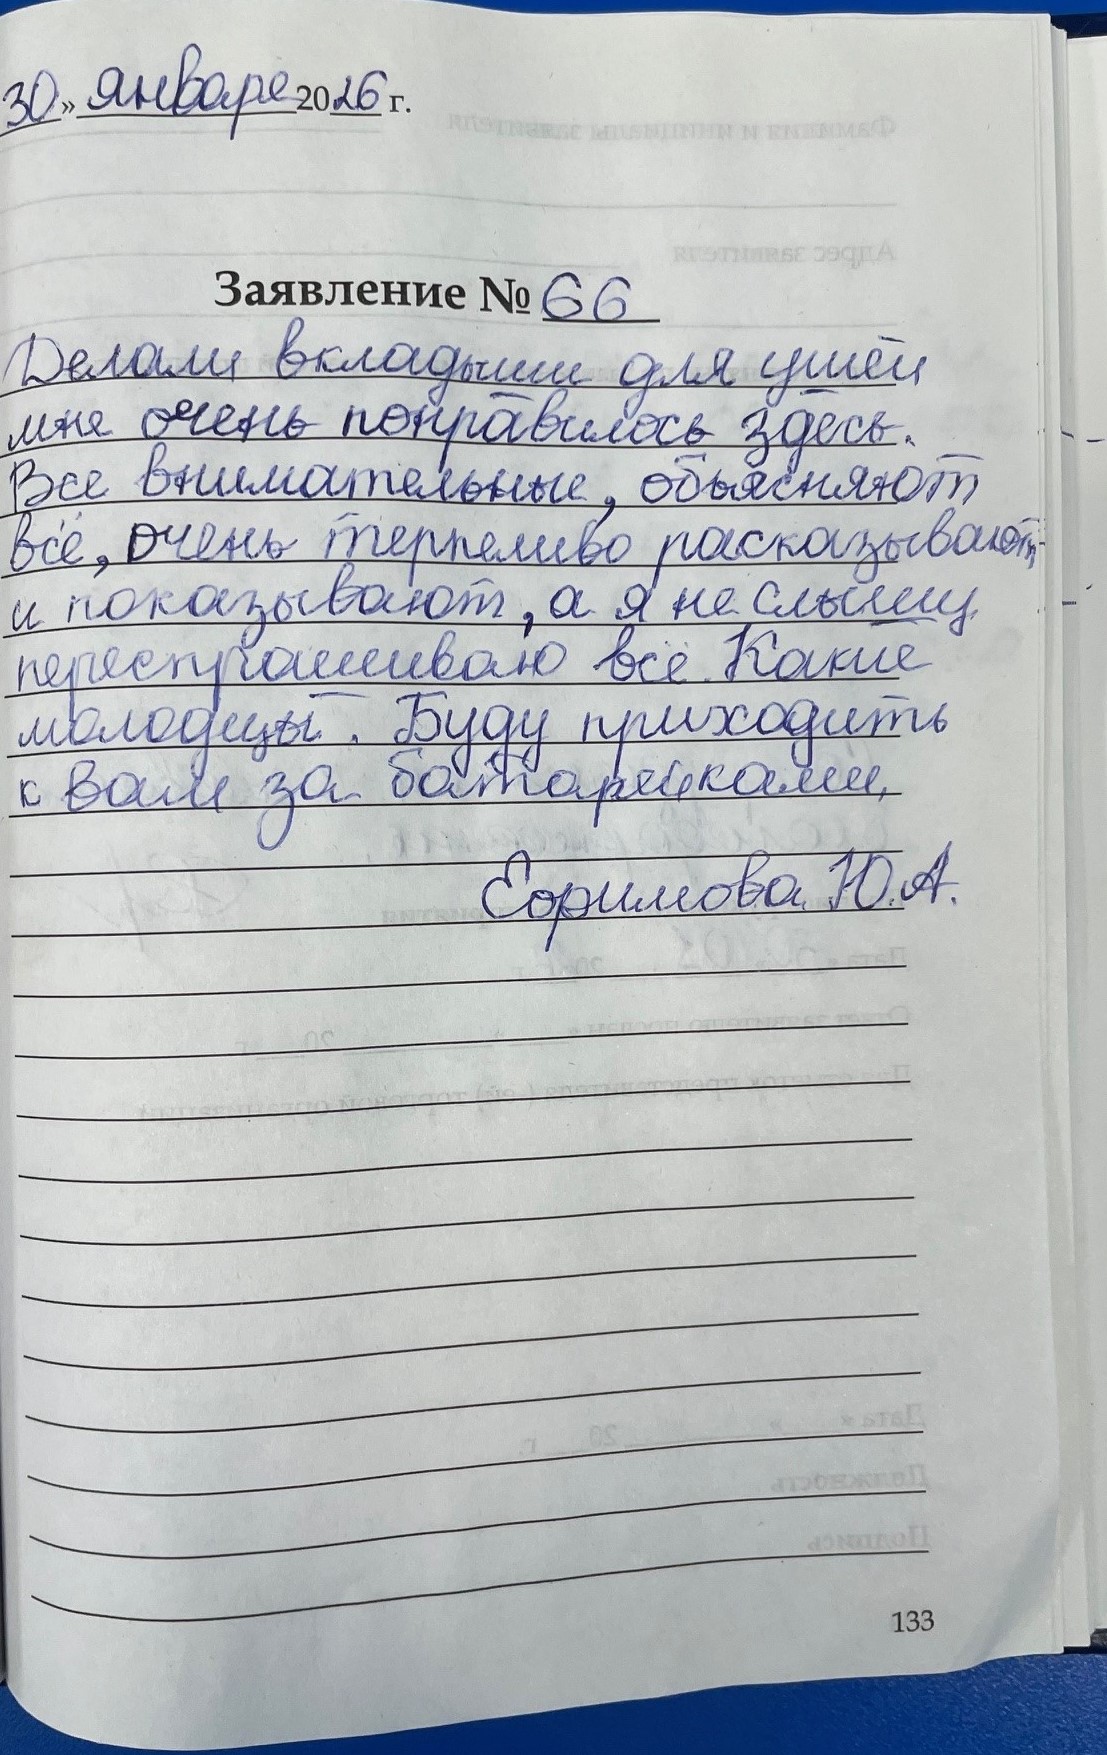 30» января 2026 г.
Заявление № 66
Делали вкладыши для ушей
мне очень понравилось здесь.
Все внимательные, объясняют
всё, очень терпеливо расказывают
и показывают, а я не слышу
переспрашиваю всё. Какие
молодцы. Буду приходить
к вам за батарейками.
Ефимова Ю.А.
133